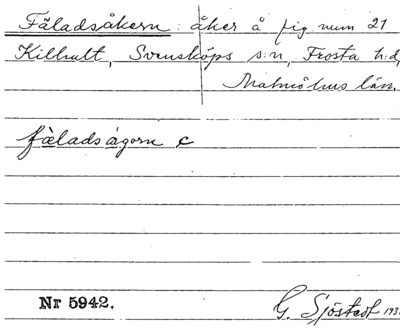 Fäladsåkern: åker å fig num 21
Killhult, Svensköps s:n, Frosta h:d,
Malmöhus län.
fäladsågorn c
Nr 5942.
G. Sjöstedt 193